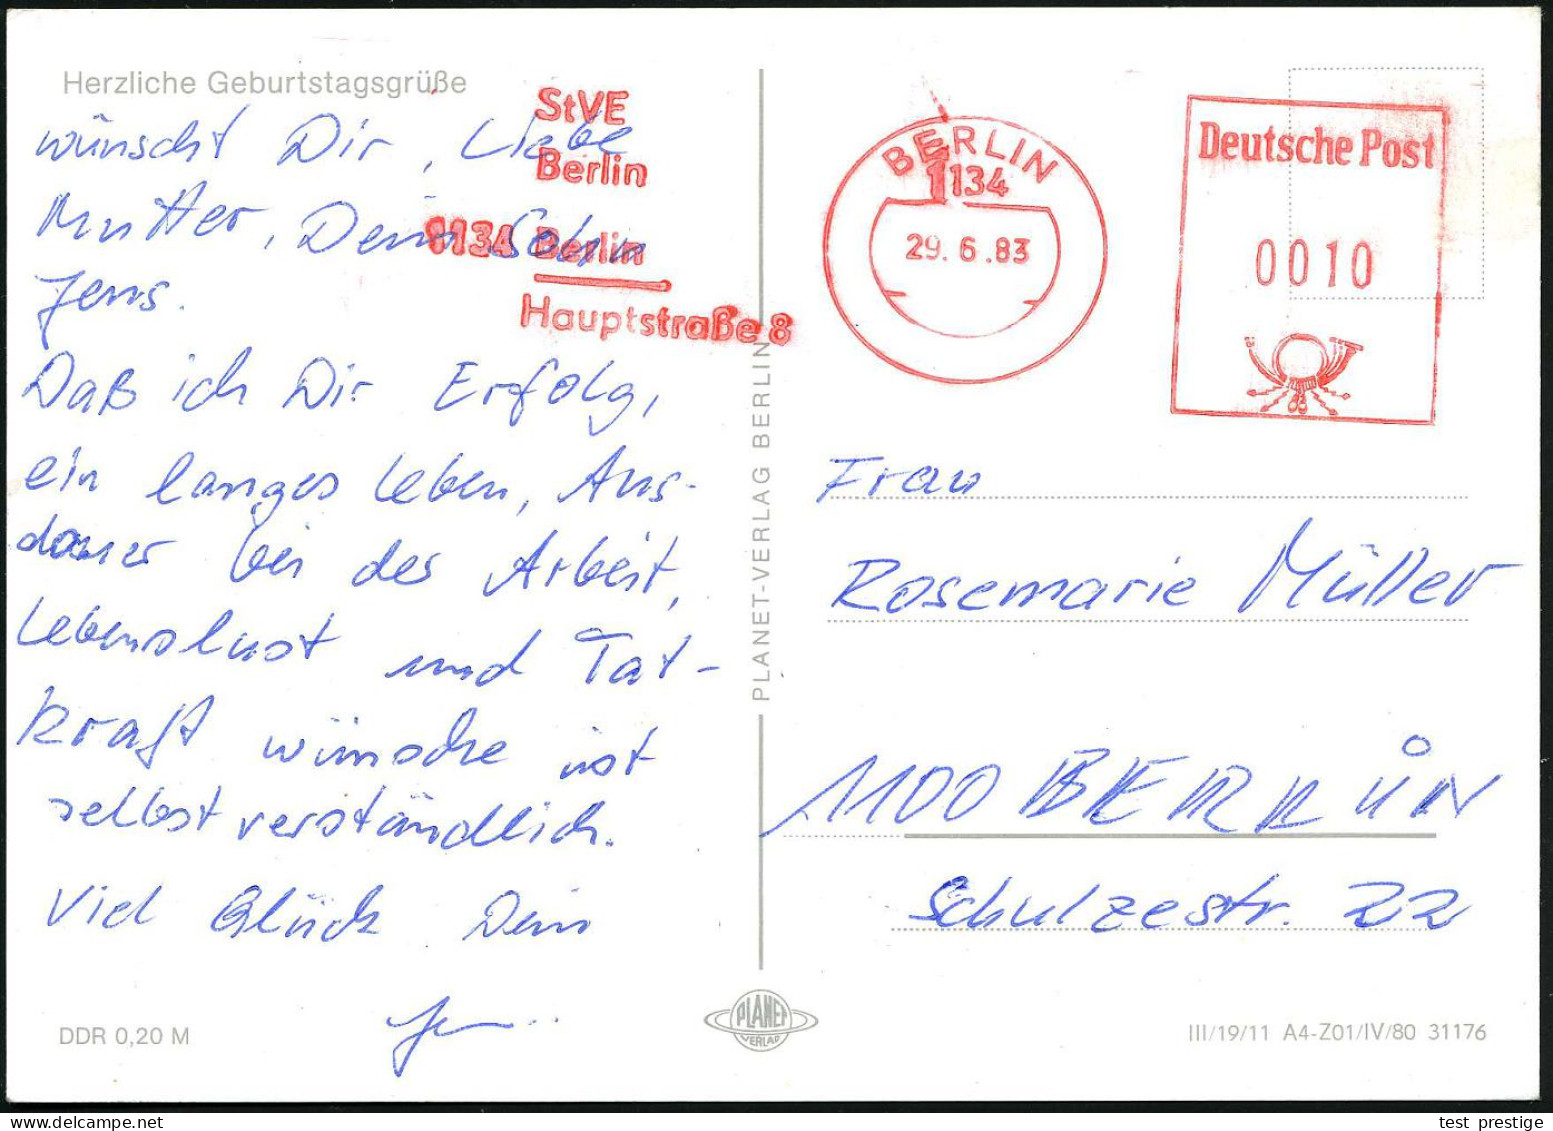 Herzliche Geburtstagsgrüße
wünscht Dir, Liebe
Mutter, Dein Sohn
Jens.
Daß ich Dir Erfolg,
ein langes Leben, Aus-
dauer bei des Arbeit,
Lebenslust und Tat-
kraft wünsche ist
selbst verständlich.
Viel Glück Dein
DDR 0,20 M
StVE
Berlin
1134 Berlin
Hauptstraße 8
PLANET-VERLAG BERLIN
PLANET
VERLAG
BERLIN
1134
29.6.83
Deutsche Post
0010
Frau
Rosemarie Müller
1100 BERLIN
Schulzestr. 22
III/19/11 A4-Z01/IV/80 31176
test prestige